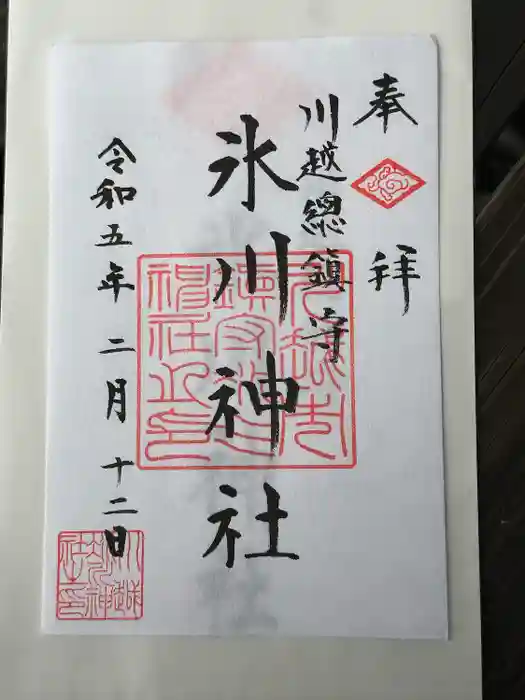 奉拝
川越總鎮守
氷川神社
令和五年 二月 十二日